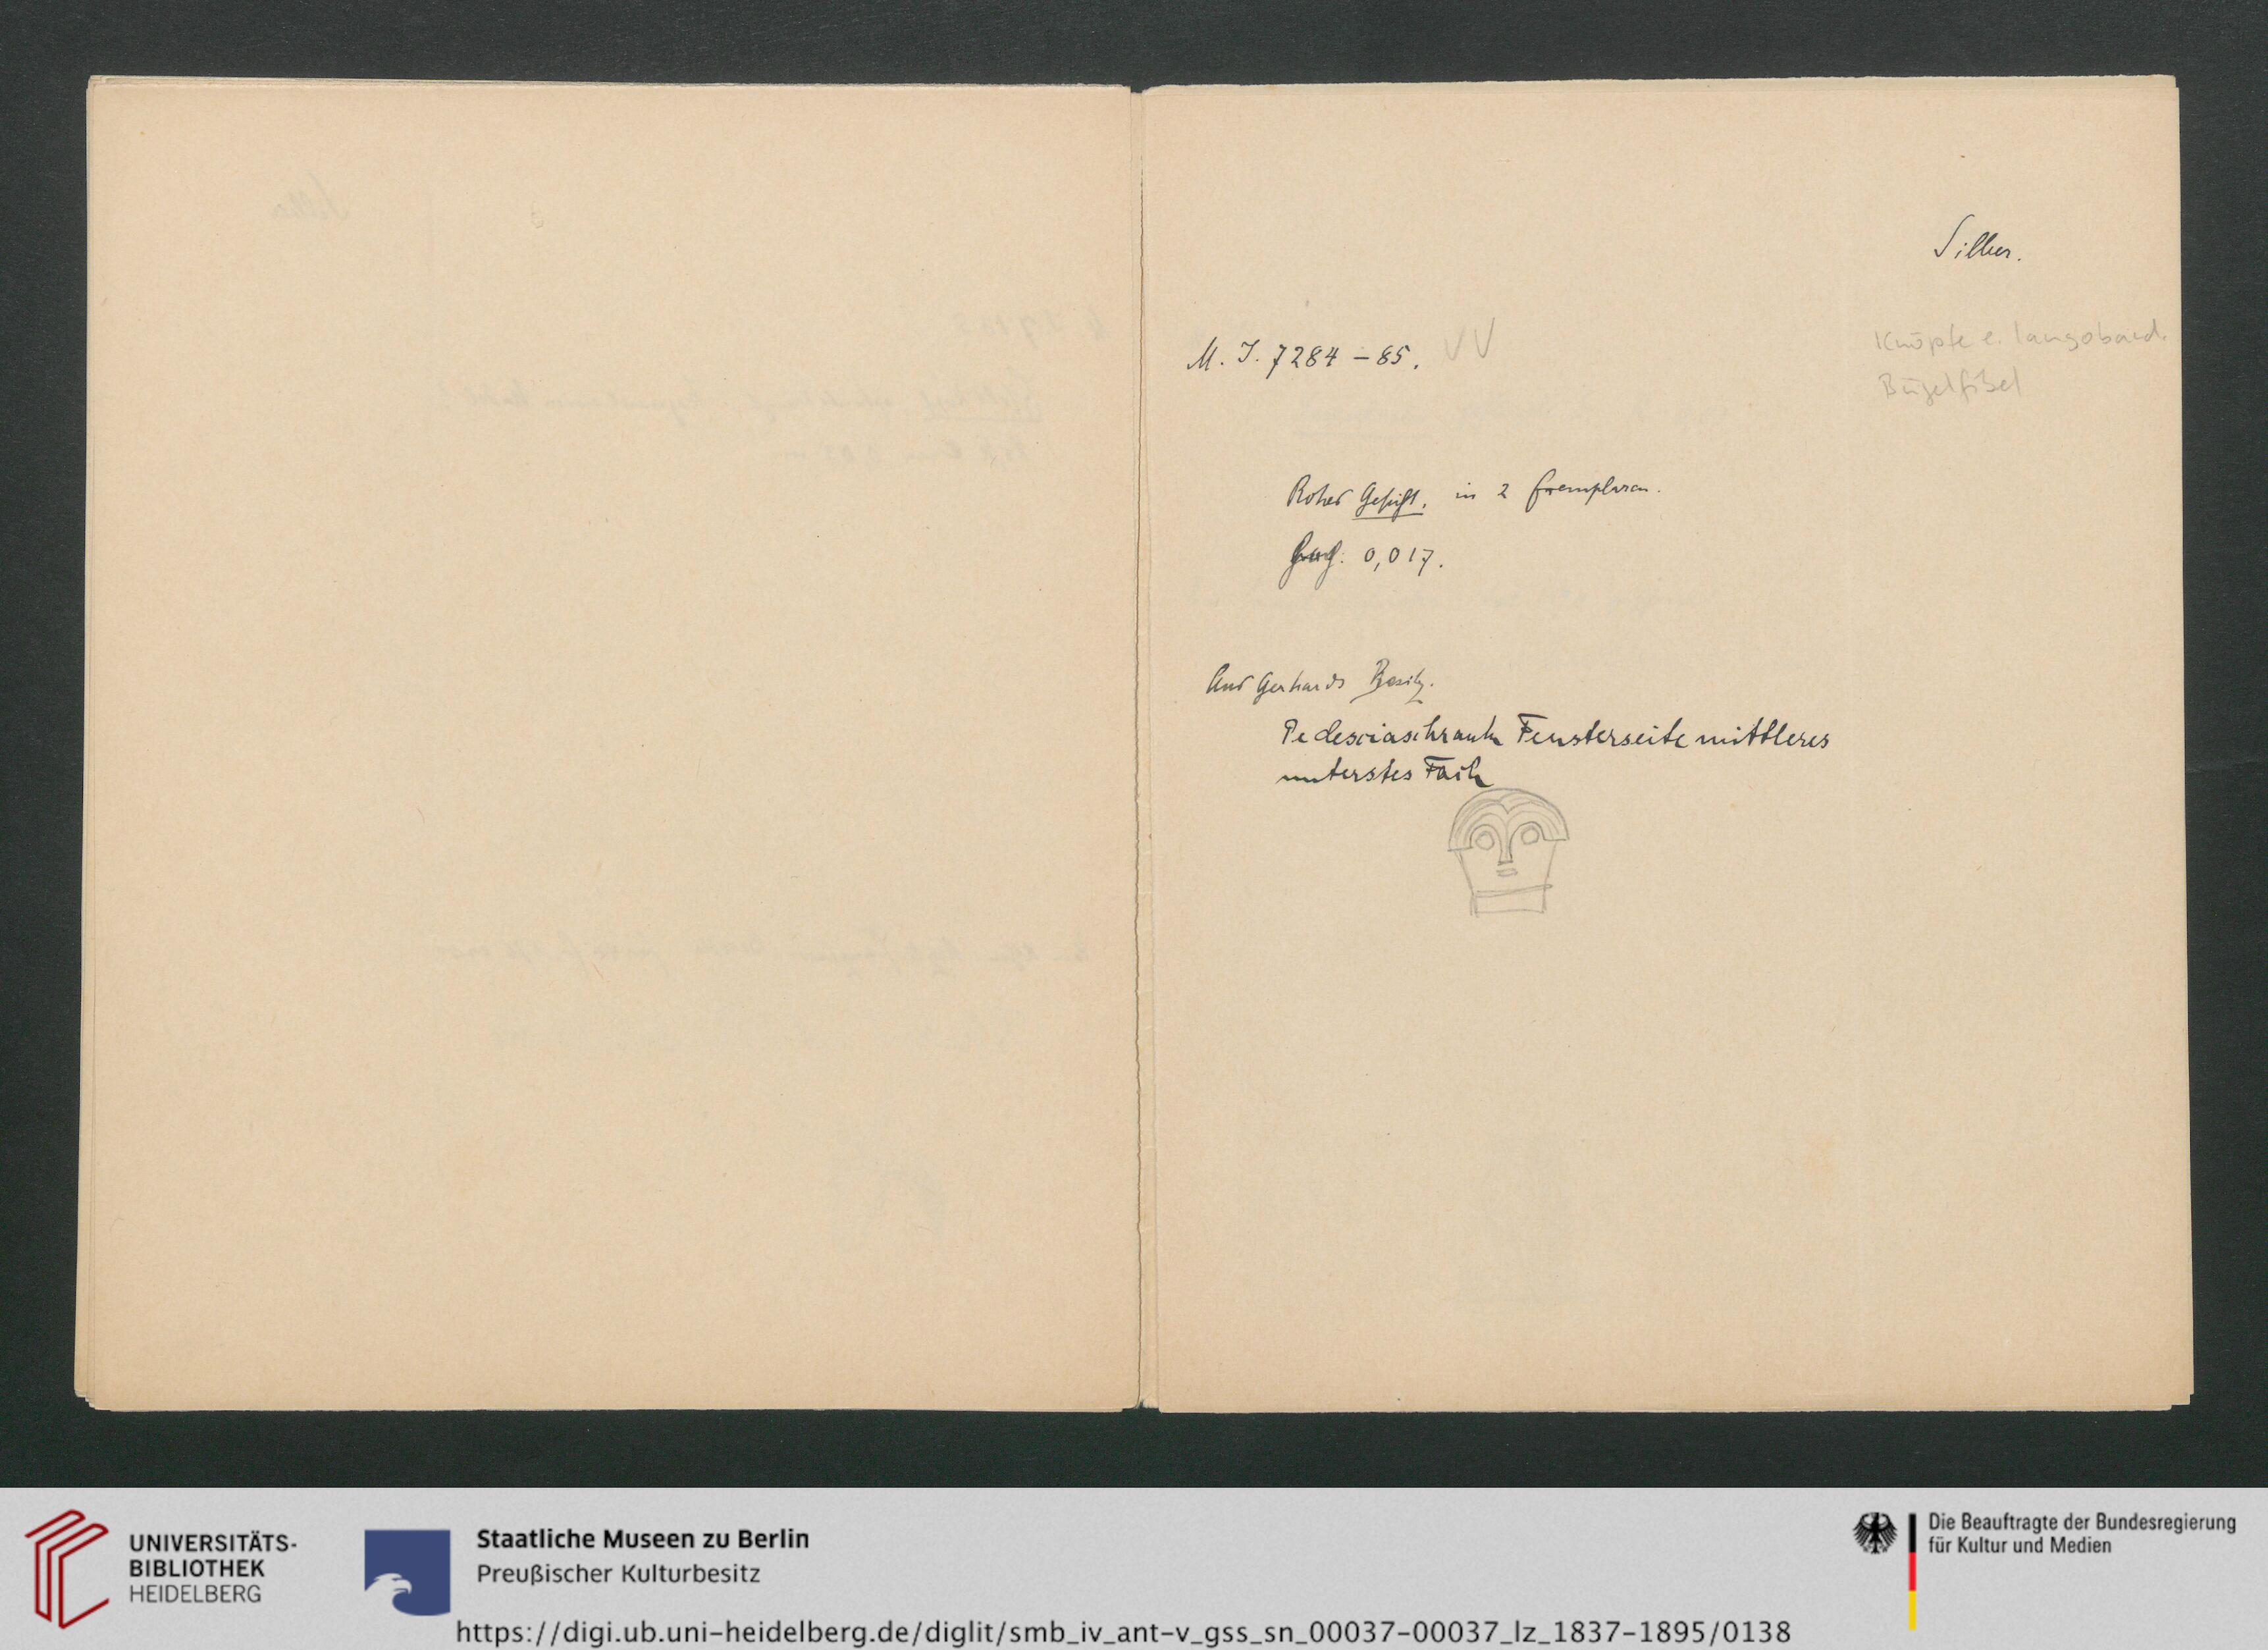 Silber.
Knöpfe e. langobard.
Bügelfibel
M. I. 7284 – 85. VV
Rohes Gesicht. in 2 Exemplaren.
0,017.
Aus Gerhards Besitz.
Pedesciaschrank Fensterseite mittleres
unterstes Fach
UNIVERSITÄTS-
BIBLIOTHEK
HEIDELBERG
Staatliche Museen zu Berlin
Preußischer Kulturbesitz
Die Beauftragte der Bundesregierung
für Kultur und Medien
https://digi.ub.uni-heidelberg.de/diglit/smb_iv_ant-v_gss_sn_00037-00037_lz_1837-1895/0138